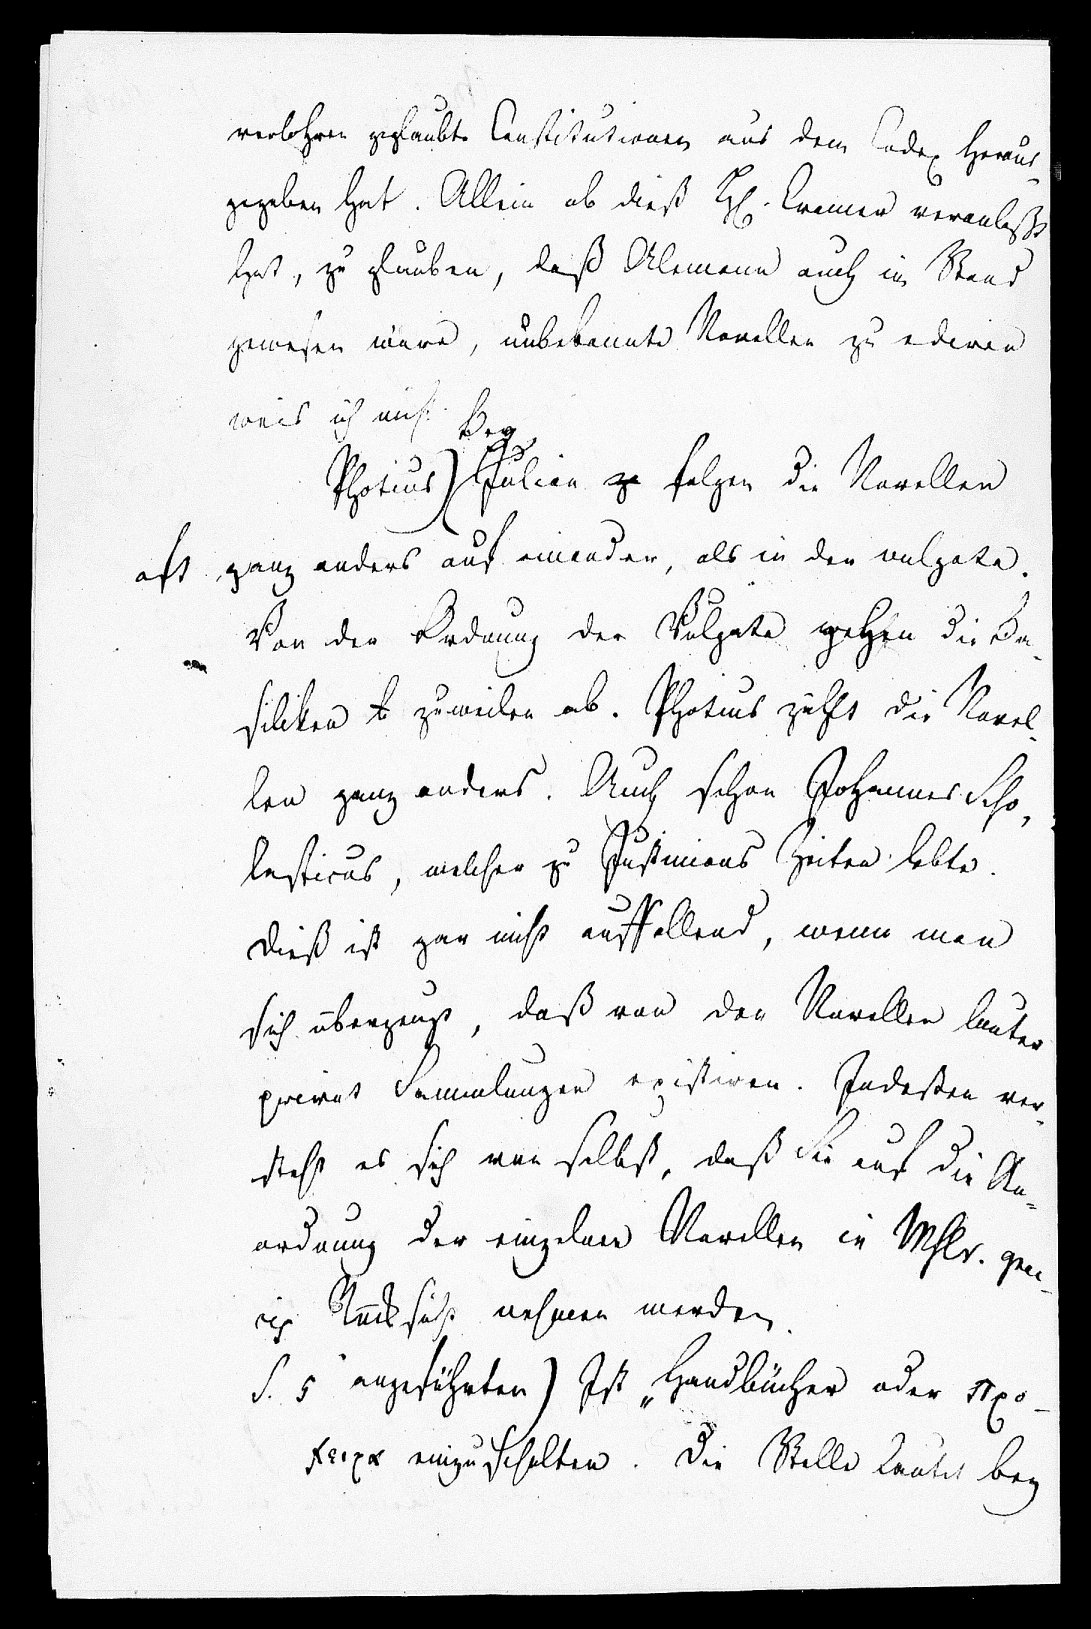 verlohren geglaubte Constitutionen aus dem Codex heraus-
gegeben hat. Allein ob dieß H. Cramer veranlaßt
hat, zu glauben, daß Alemann auch im Stand
gewesen wäre, unbekannte Novellen zu ediren
weis ich nicht.
Bey
Photius) Julian folgen die Novellen
oft ganz anders auf einander, als in der vulgata.
Von der Ordnung der Vulgata gehen die Ba-
siliken zuweilen ab. Photius zählt die Novel-
len ganz anders. Auch schon Johannes Scho-
lasticus, welcher zu Justinians Zeiten lebte.
Dieß ist gar nicht auffallend, wenn man
sich überzeugt, daß von den Novellen lauter
privat Sammlungen existiren. Indeßen ver-
steht es sich von selbst, daß Sie auf die An-
ordnung der einzelnen Novellen in Mssr.
Rücksicht nehmen werden.
S. 5 angeführten) Ist „Handbücher oder προ-
χειρα einzuschalten. Die Stelle lautet bey